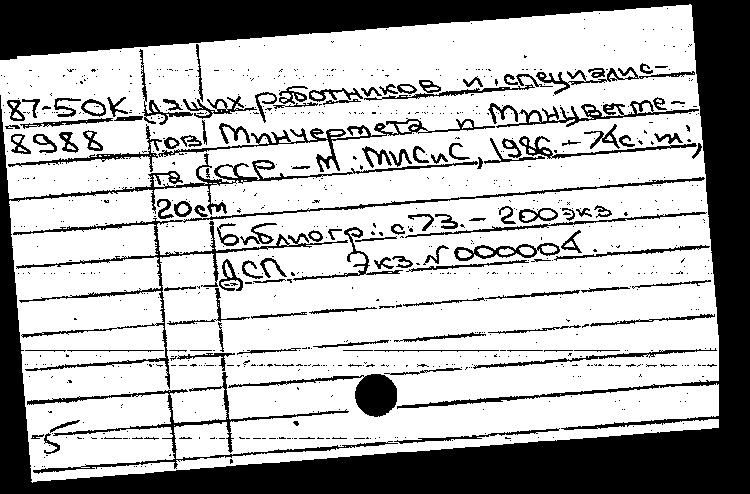 87-50К дящих работников и специалис-
8988 тов Минчермета и Минцветме-
та СССР. – М.: МИСиС, 1986. – 74с.: ил.;
20см.
Библиогр.: с.73. – 200экз.
ДСП. Экз. N 000004.
5